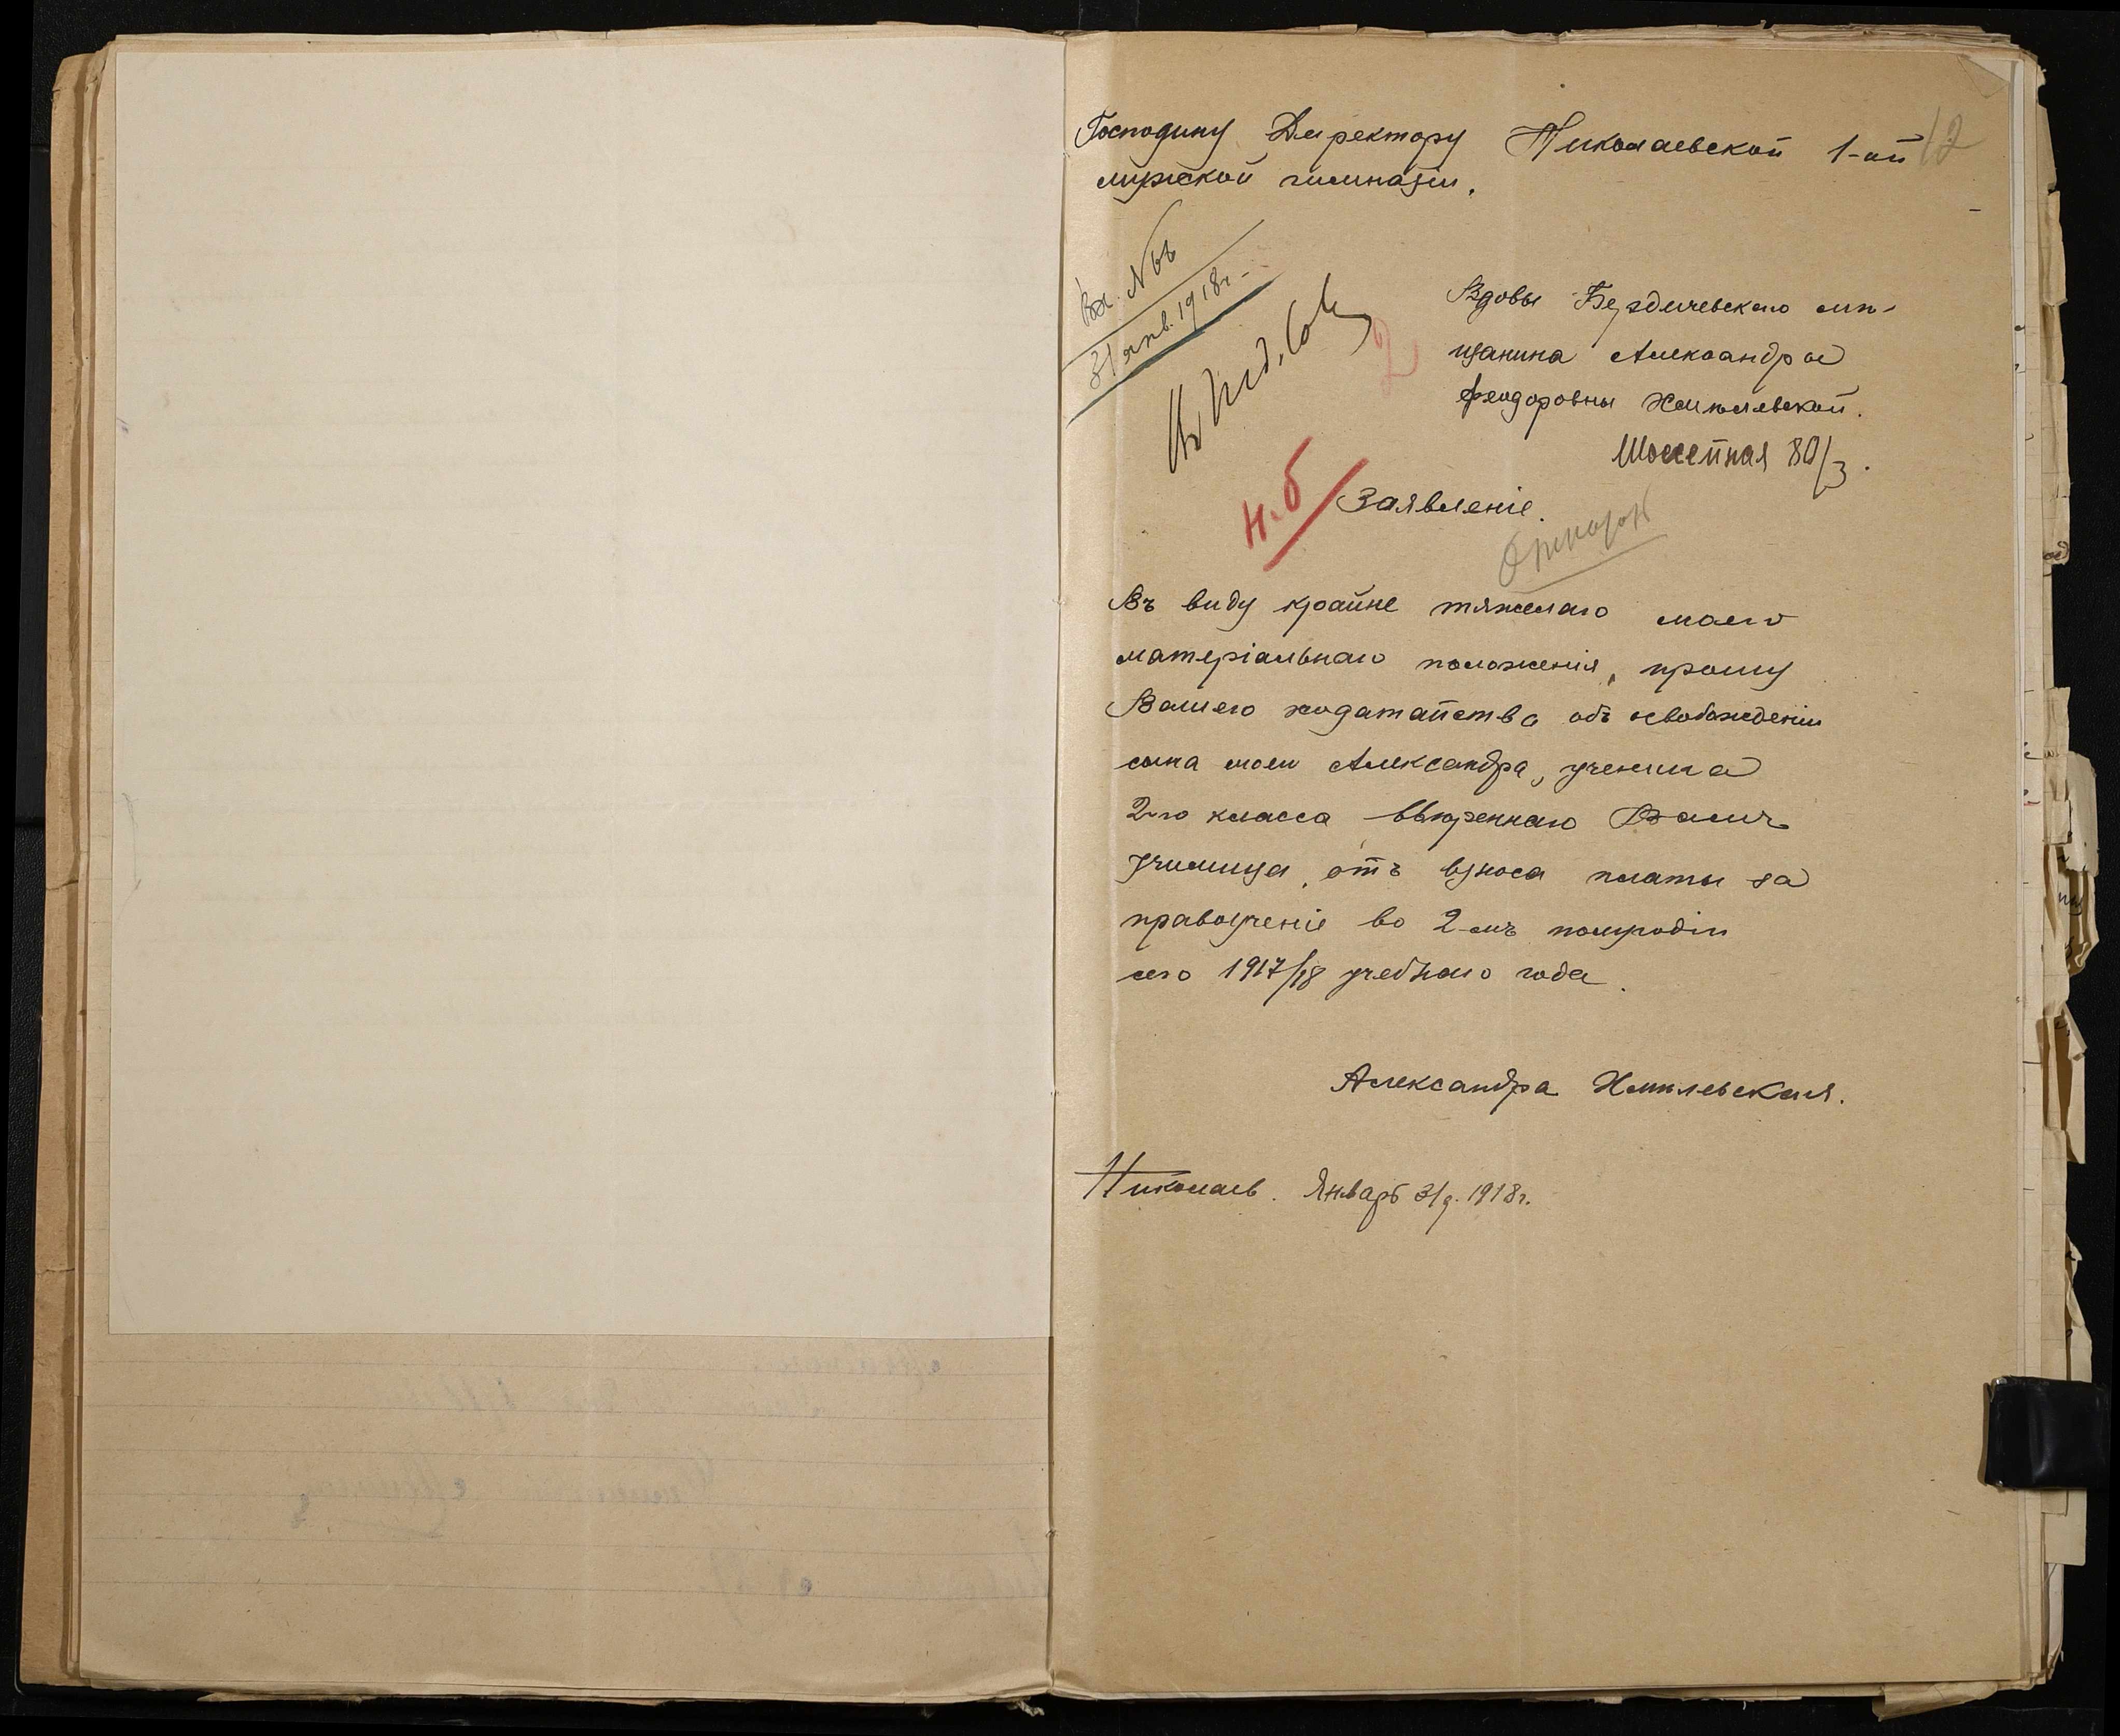 Господину Директору Николаевской 1-ой
мужской гимназіи.
12
Вх. №66
31 янв. 1918г.
Въ Пед. Сов
2
Вдовы Бердичевскаго мѣ-
щанина Александры
Феодоровны Хмѣлевской.
Шоссейная 80/3.
н.б
Заявленіе.
Въ виду крайне тяжелаго моего
матеріальнаго положенія, прошу
Вашего ходатайства объ освобожденіи
сына моего Александра, ученика
2-го класса ввѣреннаго Вамъ
училища, отъ взноса платы за
правоученіе во 2-мъ полугодіи
сего 1917/18 учебнаго года.
Александра Хмѣлевская.
Николаев. Январь 31 д. 1918г.